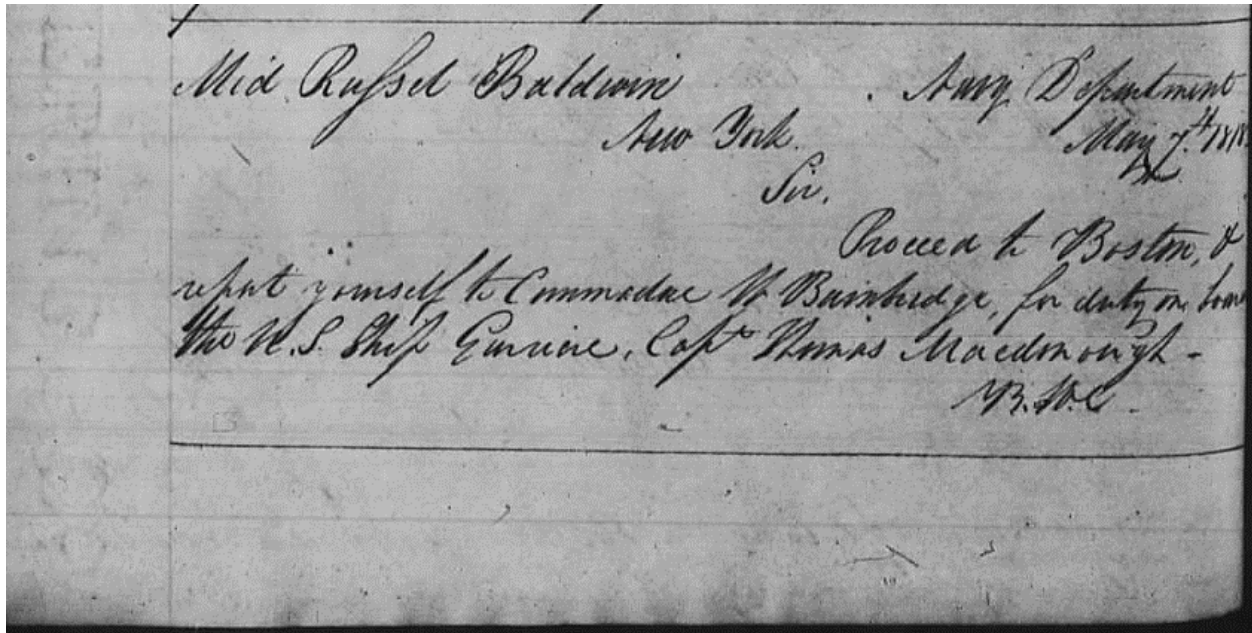 Mid. Russel Baldwin Navy Department
New York. May 7th. 1818
Sir,
Proceed to Boston, &
report yourself to Commodore W Bainbridge, for duty on boa
the U.S. Ship Guerriere, Capt. Thomas Macdonough -
B.W.C.